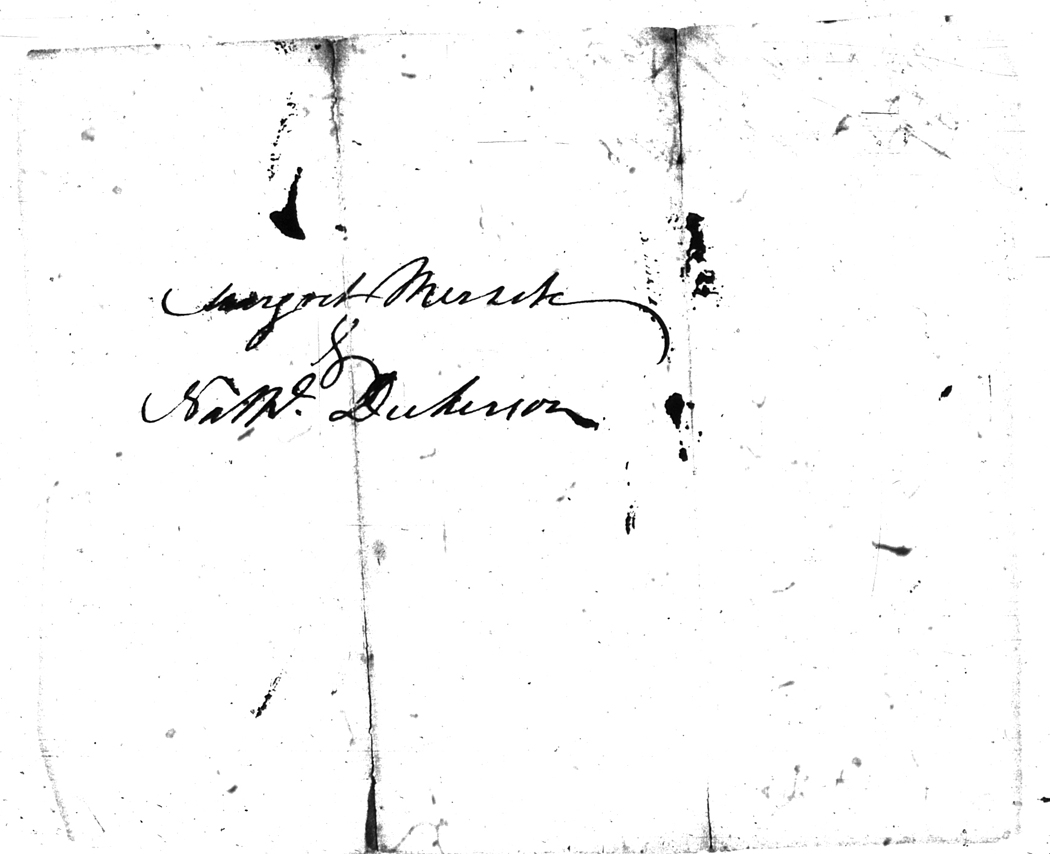 Margret Mersck
&
Nathl. Dickerson